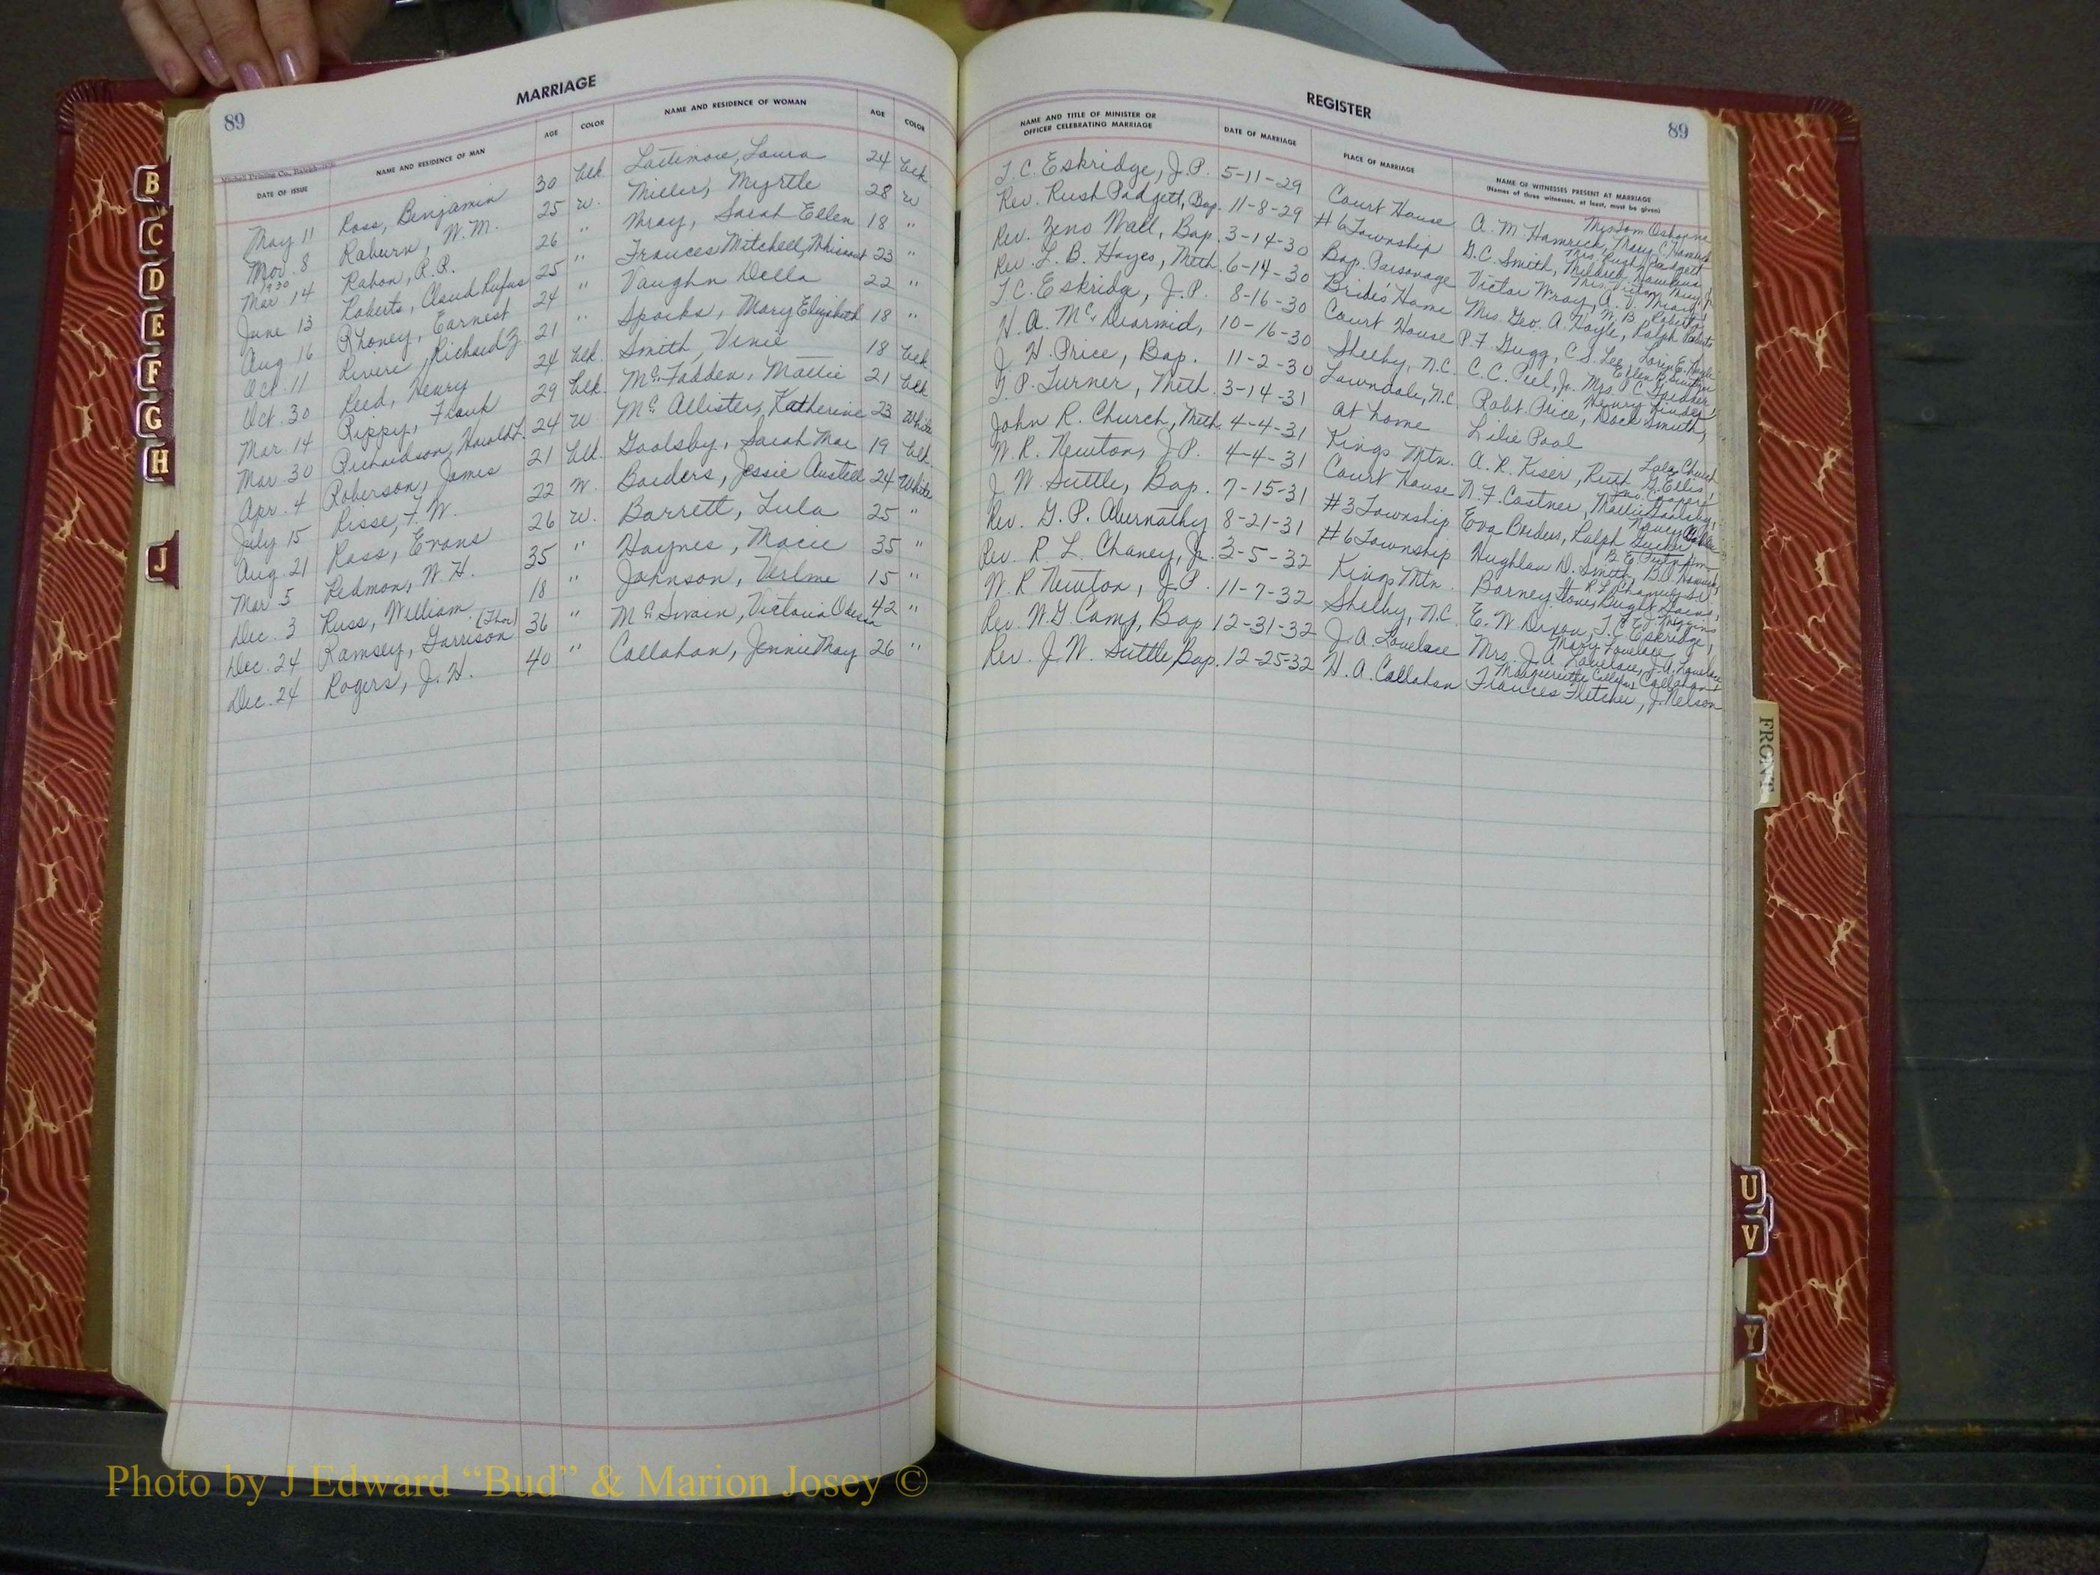 MARRIAGE
89
Mitchell Printing Co., Raleigh
DATE OF ISSUE NAME AND RESIDENCE OF MAN AGE COLOR NAME AND RESIDENCE OF WOMAN AGE COLOR
May 11 Ross, Benjamin 30 Col. Lattimore, Laura 24 Col.
Nov. 8 Raburn, W. M. 25 W. Miller, Myrtle 28 W
1930
Mar 14 Rabon, R. R. 26 " Wray, Sarah Ellen 18 "
June 13 Roberts, Claud Rufus 25 " Frances Mitchell 23 "
Aug 16 Rhoney, Earnest 24 " Vaughn Della 22 "
Oct. 11 Riviere, Richard Z 21 " Sparks, Mary Elizabeth 18 "
Oct. 30 Reed, Henry 24 Col. Smith, Venie 18 Col
Mar. 14 Rippy, Frank 29 Col. McFadden, Mattie 21 Col
Mar 30 Richardson, Harold L. 24 W McAllister, Katherine 23 White
Apr. 4 Roberson, James 21 Col. Goolsby, Sarah Mae 19 Col.
July 15 Risse, F. W. 22 W. Borders, Jessie Austell 24 White
Aug. 21 Ross, Evans 26 W. Barrett, Lula 25 "
Mar 5 Redmon, W. H. 35 " Haynes, Macie 35 "
Dec. 3 Russ, William 18 " Johnson, Verlme 15 "
Dec. 24 Ramsey, Garrison (Thos) 36 " McSwain, Victoria Odessa 42 "
Dec. 24 Rogers, J. H. 40 " Callahan, Jennie May 26 "
REGISTER
89
NAME AND TITLE OF MINISTER OR OFFICER CELEBRATING MARRIAGE DATE OF MARRIAGE PLACE OF MARRIAGE NAME OF WITNESSES PRESENT AT MARRIAGE
(Names of three witnesses, at least, must be given)
T. C. Eskridge, J. P. 5-11-29 Court House A. M. Hamrick, Mary C. Hamrick Mrs Tom Osborne
Rev. Rush Padgett, Bap. 11-8-29 #6 Township G. C. Smith, Mildred Hawkins Mrs. Rush Padgett
Rev. Zeno Wall, Bap. 3-14-30 Bap. Parsonage Victor Wray, A. V. Wray,
Rev. L. B. Hayes, Meth. 6-14-30 Bride's Home Mrs. Geo. A. Hoyle, Ralph Roberts
T. C. Eskridge, J. P. 8-16-30 Court House P. F. Grigg, C. S. Lee
H. A. McDiarmid, 10-16-30 Shelby, N.C. C. C. Peel, Jr. Mrs. C. Gardner
J. H. Price, Bap. 11-2-30 Lawndale, N.C. Robt. Price, Dock Smith,
G. P. Turner, Meth. 3-14-31 at home Lilie Pool
John R. Church, Meth. 4-4-31 Kings Mtn. A. R. Kiser, Ruth G. Ellis, Lola Church
W. R. Newton, J. P. 4-4-31 Court House N. F. Costner, Mattie Goolsby, Geo. Cooper
J. W. Suttle, Bap. 7-15-31 #3 Township Eva Borders, Ralph
Rev. G. P. Abernathy 8-21-31 #6 Township Hughlan D. Smith,
Rev. R. L. Chaney, Jr. 3-5-32 Kings Mtn. Barney Stone, Dwight Goins,
W. R. Newton, J. P. 11-7-32 Shelby, N.C. E. W. Dixon, T. C. Eskridge,
Rev. W. G Camp, Bap 12-31-32 J. A. Lovelace Mrs. J. A. Lovelace, J. A. Lovelace Mary Lovelace
Rev. J. W. Suttle, Bap. 12-25-32 H. A. Callahan Frances Fletcher, J. Nelson Callahan
B
C
D
E
F
G
H
J
FRONT
U
V
Y
Photo by J Edward “Bud” & Marion Josey ©